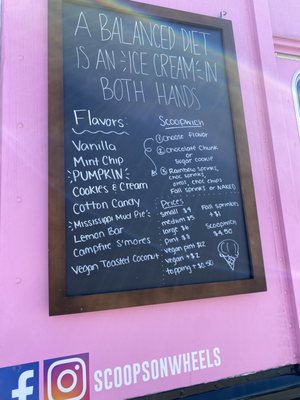 A BALANCED DIET
IS AN ICE CREAM IN
BOTH HANDS
Flavors
Vanilla
Mint Chip
PUMPKIN
Cookies & Cream
Cotton Candy
Mississippi Mud Pie
Lemon Bar
Campfire S'mores
Vegan Toasted Coconut
Scoopwich
① Choose flavor
② Chocolate Chunk
or
Sugar cookie
③ Rainbow sprinks,
choc sprinks,
mini choc chips
Fall sprinks or NAKED
Prices
small $4
medium $5
large $6
pint $8
vegan pint $12
vegan + $2
topping + $0.50
Fall sprinkles
+ $1
Scoopwich
$4.50
f
SCOOPSONWHEELS